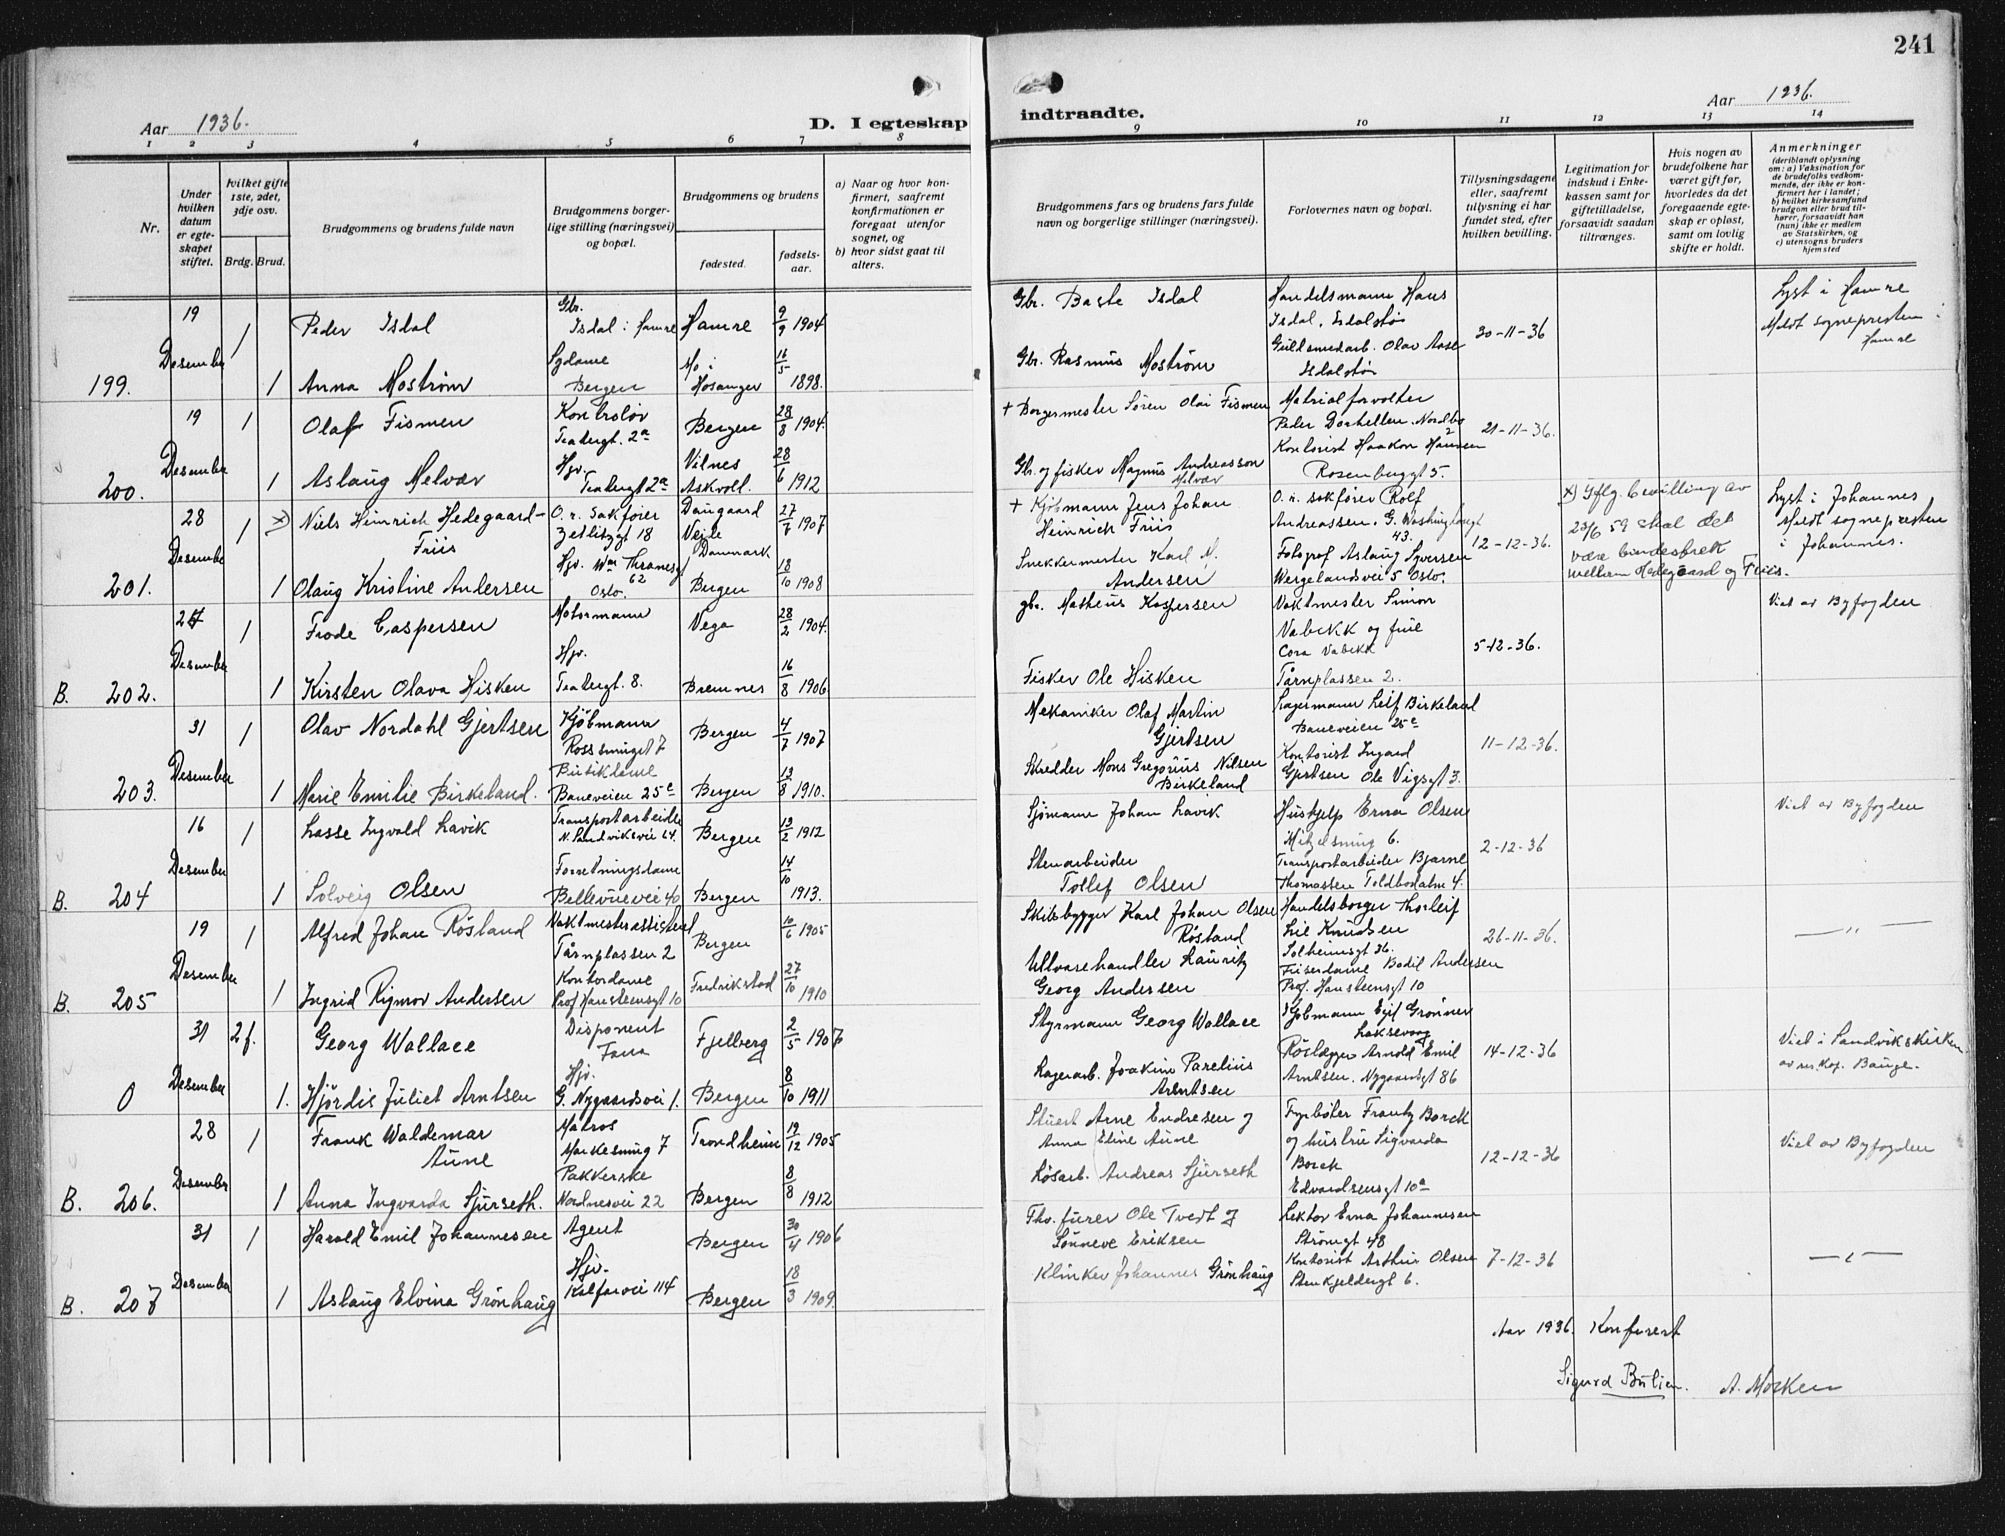 241
Aar 1936.
D. I egteskap
indtraadte.
Aar 1936.
1 2 3 4 5 6 7 8 9 10 11 12 13 14
Nr.
Under hvilken datum er egteskapet stiftet.
hvilket gifte 1ste, 2det, 3dje osv.
Brdg. Brud.
Brudgommens og brudens fulde navn
Brudgommens borgerlige stilling (næringsvei) og bopæl.
Brudgommens og brudens
fødested.
fødselsaar.
a) Naar og hvor konfirmert, saafremt konfirmationen er foregaat utenfor sognet, og
b) hvor sidst gaat til alters.
Brudgommens fars og brudens fars fulde navn og borgerlige stillinger (næringsvei).
Forlovernes navn og bopæl.
Tillysningsdagene eller, saafremt tillysning ei har fundet sted, efter hvilken bevilling.
Legitimation for indskud i Enkekassen samt for giftetilladelse, forsaavidt saadan tiltrænges.
Hvis nogen av brudefolkene har været gift før, hvorledes da det foregaaende egteskap er opløst, samt om lovlig skifte er holdt.
Anmerkninger
(deriblandt oplysning om: a) Vaksination for de brudefolks vedkommende, der ikke er konfirmert her i landet; b) hvilket kirkesamfund brudgom eller brud tilhører, forsaavidt han (hun) ikke er medlem av Statskirken, og c) utensogns bruders hjemsted
19 1 Peder Isdal Gbr. Isdal i Hamre Hamre 9/9 1904
Gbr. Baste Isdal Handelsmann Hans Isdal, Isdalstø 30-11-36 Lyst i Hamre Meldt sognepresten i Hamre
199. Desember 1 Anna Mostrøm Sydame Bergen Mo i Hosanger 16/5 1898.
Gbr. Rasmus Mostrøm Gullsmedarb. Olav Aase Isdalstø
19 1 Olaf Fismen Kontrolør Teatergt. 2a Bergen 28/8 1904.
+ Borgermester Søren Olai Fismen Matrialforvalter Peder Nordbø 2 21-11-36.
200. Desember 1 Aslaug Melvær Hjv. Teatergt 2a Vilnes Askvoll. 28/6 1912
Gbr. og fisker Magnus Andreasson Melvær Kontorist Haakon Hansen Rosenberggt 5.
28 1 x) Niels Heinrich Hedegaard-Friis O. r. sakfører Zetlitzgt 18 Daugaard Vejle Danmark 27/7 1907
+ Kjøbmann Jens Johan Heinrich Friis O. r. sakfører Rolf Andreassen, G. 43. 12-12-36. x) Iflg. bevilling av 23/6 59 skal det være bindestrek mellem Hedegaard og Friis. Lyst i Johannes Meldt sognepresten i Johannes.
201. Desember 1 Olaug Kristine Andersen Hjv. Wm Thranesgt 62 Oslo. Bergen 18/10 1908
Snekkermester Karl M. Andersen Fotograf Aslaug Syversen Wergelandsvei 5 Oslo.
27 1 Frode Caspersen Motormann Vega 28/2 1904.
gbr. Matheus Kaspersen Vaktmester Simon Vabekk og frue Cora Vabekk 5-12-36. Viet av Byfogden
B. 202. Desember 1 Kirsten Olava Hisken Hjv. Teatergt. 8. Bremnes 16/8 1906
Fisker Ole Hisken Tårnplassen 2.
31 1 Olav Nordahl Gjertsen Kjøbmann Rossmuget 7 Bergen 4/7 1907
Mekaniker Olaf Martin Gjertsen Lagermann Leif Birkeland Baneveien 25e 11-12-36.
203. Desember 1 Marie Emilie Birkeland. Butikdame Baneveien 25e Bergen 13/8 1910.
Skredder Mons Gregorius Nilsen Birkeland Kontorist Ingard Gjertsen Ole Vigsgt 3.
16 1 Lasse Ingvald Lavik Transportarbeider N. Sandviksvei 64. Bergen 13/2 1912
Sjømann Johan Lavik Hushjelp Erna Olsen 6. 2-12-36 Viet av Byfogden
B. 204 Desember 1 Solveig Olsen Forretningsdame Bellevuevei 40 Bergen 14/10 1913.
Stenarbeider Tollef Olsen Transportarbeider Bjarne Thomassen Toldbodalm 4.
19 1 Alfred Johan Røsland Vaktmesterassistent Tårnplassen 2 Bergen 10/6 1905
Skibsbygger Karl Johan Olsen Røsland Handelsborger Thorleif Lie Knudsen Solheimsgt 36. 26-11-36. — " —
B. 205 Desember 1 Ingrid Rigmor Andersen Kontordame Prof Hansteensgt 10 Fredrikstad 27/10 1910
Ullvarehandler Lauritz Georg Andersen Frisørdame Bodil Andersen Prof. Hansteensgt 10
31 2 f. Georg Wallace Disponent Fana Fjelberg 2/5 1907
Styrmann Georg Wallace Kjøbmann Egil Grønner Laksevaag 14-12-36 Viet i Sandvikskirken av res. kap. Bauge.
0 Desember 1. Hjørdis Juliet Arntsen Hjv. G. Nygaardsvei 1. Bergen 8/10 1911
Lagerarb. Joakim Parelius Arntsen Rørlegger Arnold Emil Arntsen. Nygaardsgt 86
28 1 Frank Waldemar Aune Matros Markesmug 7 Trondheim 19/12 1905
Stuert Arne Endresen og Anna Eline Aune Fyrbøter Frantz Borck og hustru Sigvarda Borck 12-12-36 Viet av Byfogden
B. 206. Desember 1 Anna Ingvarda Sjurseth. Pakkerske Nordnesvei 22 Bergen 8/8 1912
Løsarb. Andreas Sjurseth Edvardsensgt 10a
31 1 Harald Emil Johannesen Agent Bergen 30/4 1906
Tho. fører Ole Tvedt og Sønneve Eriksen Lektor Erna Johannesen Strømgt 48 7-12-36 — " —
B. 207 Desember 1 Aslaug Elvina Grønhaug Hjv. Kalfarvei 114 Bergen 18/3 1909.
Klinker Johannes Grønhaug Kontorist Arthur Olsen Stenkjeldergt 6.
Aar 1936. Konferert
Sigurd Bulien. A. Morken